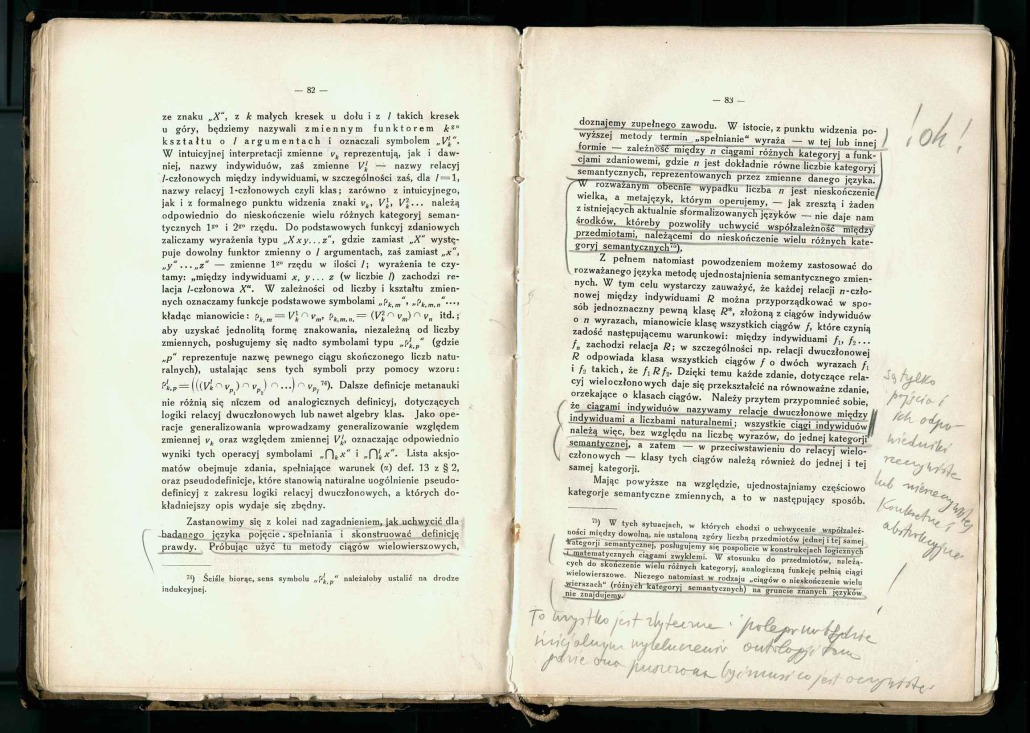 — 82 —
ze znaku „X“, z k małych kresek u dołu i z l takich kresek
u góry, będziemy nazywali zmiennym funktorem kᵍᵒ
kształtu o l argumentach i oznaczali symbolem „Vₖˡ“.
W intuicyjnej interpretacji zmienne vₖ reprezentują, jak i daw-
niej, nazwy indywiduów, zaś zmienne Vₖˡ — nazwy relacyj
l-członowych między indywiduami, w szczególności zaś, dla l=1,
nazwy relacyj 1-członowych czyli klas; zarówno z intuicyjnego,
jak i z formalnego punktu widzenia znaki vₖ, Vₖ¹, Vₖ²... należą
odpowiednio do nieskończenie wielu różnych kategoryj seman-
tycznych 1ᵍᵒ i 2ᵍᵒ rzędu. Do podstawowych funkcyj zdaniowych
zaliczamy wyrażenia typu „Xxy...z“, gdzie zamiast „X“ wystę-
puje dowolny funktor zmienny o l argumentach, zaś zamiast „x“,
„y“...„z“ — zmienne 1ᵍᵒ rzędu w ilości l; wyrażenia te czy-
tamy: „między indywiduami x, y... z (w liczbie l) zachodzi re-
lacja l-członowa X“. W zależności od liczby i kształtu zmien-
nych oznaczamy funkcje podstawowe symbolami
kładąc mianowicie: itd.;
aby uzyskać jednolitą formę znakowania, niezależną od liczby
zmiennych, posługujemy się nadto symbolami typu (gdzie
„p“ reprezentuje nazwę pewnego ciągu skończonego liczb natu-
ralnych), ustalając sens tych symboli przy pomocy wzoru:
Dalsze definicje metanauki
nie różnią się niczem od analogicznych definicyj, dotyczących
logiki relacyj dwuczłonowych lub nawet algebry klas. Jako ope-
racje generalizowania wprowadzamy generalizowanie względem
zmiennej vₖ oraz względem zmiennej Vₖˡ, oznaczając odpowiednio
wyniki tych operacyj symbolami „⋂ₖx“ i „⋂ₖˡx“. Lista aksjo-
matów obejmuje zdania, spełniające warunek (α) def. 13 z § 2,
oraz pseudodefinicje, które stanowią naturalne uogólnienie pseudo-
definicyj z zakresu logiki relacyj dwuczłonowych, a których do-
kładniejszy opis wydaje się zbędny.
Zastanowimy się z kolei nad zagadnieniem, jak uchwycić dla
badanego języka pojęcie spełniania i skonstruować definicję
prawdy. Próbując użyć tu metody ciągów wielowierszowych,
Ściśle biorąc, sens symbolu należałoby ustalić na drodze
indukcyjnej.
— 83 —
doznajemy zupełnego zawodu. W istocie, z punktu widzenia po-
wyższej metody termin „spełnianie“ wyraża — w tej lub innej
formie — zależność między n ciągami różnych kategoryj a funk-
cjami zdaniowemi, gdzie n jest dokładnie równe liczbie kategoryj
semantycznych, reprezentowanych przez zmienne danego języka.
W rozważanym obecnie wypadku liczba n jest nieskończenie
wielka, a metajęzyk, którym operujemy, — jak zresztą i żaden
z istniejących aktualnie sformalizowanych języków — nie daje nam
środków, któreby pozwoliły uchwycić współzależność między
przedmiotami, należącemi do nieskończenie wielu różnych kate-
goryj semantycznych⁷⁵).
Z pełnem natomiast powodzeniem możemy zastosować do
rozważanego języka metodę ujednostajnienia semantycznego zmien-
nych. W tym celu wystarczy zauważyć, że każdej relacji n-czło-
nowej między indywiduami R można przyporządkować w spo-
sób jednoznaczny pewną klasę R*, złożoną z ciągów indywiduów
o n wyrazach, mianowicie klasę wszystkich ciągów f, które czynią
zadość następującemu warunkowi: między indywiduami f₁, f₂...
fₙ zachodzi relacja R; w szczególności np. relacji dwuczłonowej
R odpowiada klasa wszystkich ciągów f o dwóch wyrazach f₁
i f₂ takich, że f₁Rf₂. Dzięki temu każde zdanie, dotyczące rela-
cyj wieloczłonowych daje się przekształcić na równoważne zdanie,
orzekające o klasach ciągów. Należy przytem przypomnieć sobie,
że ciągami indywiduów nazywamy relacje dwuczłonowe między
indywiduami a liczbami naturalnemi; wszystkie ciągi indywiduów
należą więc, bez względu na liczbę wyrazów, do jednej kategorji
semantycznej, a zatem — w przeciwstawieniu do relacyj wielo-
członowych — klasy tych ciągów należą również do jednej i tej
samej kategorji.
Mając powyższe na względzie, ujednostajniamy częściowo
kategorje semantyczne zmiennych, a to w następujący sposób.
⁷⁵) W tych sytuacjach, w których chodzi o uchwycenie współzależ-
ności między dowolną, nie ustaloną zgóry liczbą przedmiotów jednej i tej samej
kategorji semantycznej, posługujemy się pospolicie w konstrukcjach logicznych
i matematycznych ciągami zwykłemi. W stosunku do przedmiotów, należą-
cych do skończenie wielu różnych kategoryj, analogiczną funkcję pełnią ciągi
wielowierszowe. Niczego natomiast w rodzaju „ciągów o nieskończenie wielu
wierszach“ (różnych kategoryj semantycznych) na gruncie znanych języków
nie znajdujemy.
! ok!
Są tylko
pojęcia i
ich odpo-
wiedniki
rzeczywiste
lub nierzeczywiste
Konkretne i
abstrakcyjne
!
To wszystko jest zbyteczne i
ontologji tam
gdzie ona być musi co jest oczywiste